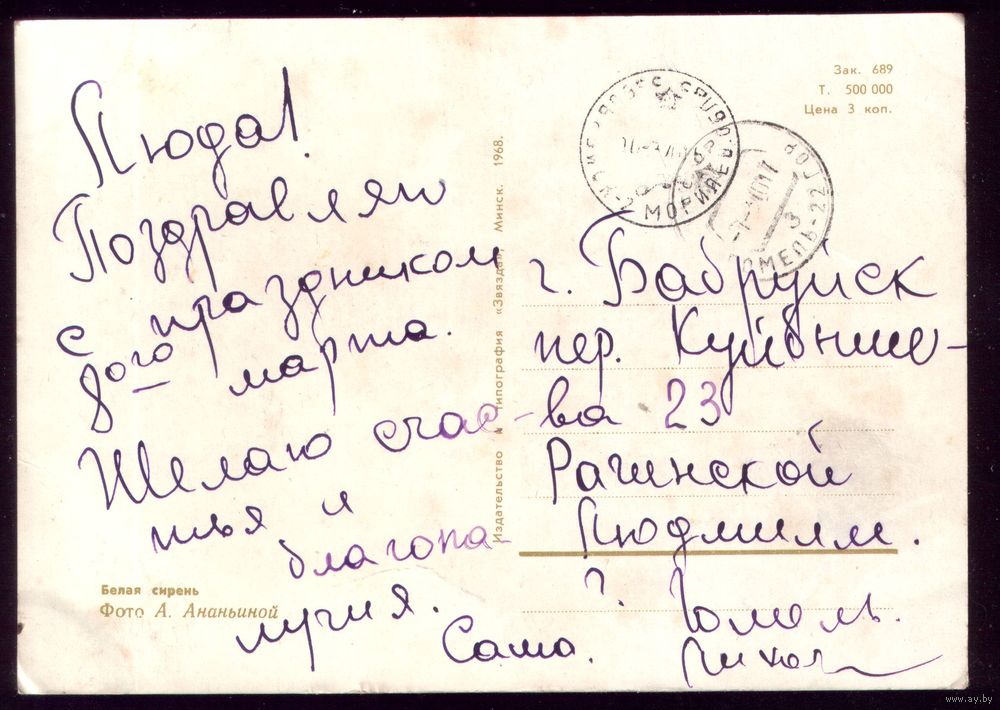 Люда!
Поздравляю
с праздником
8ого марта.
Желаю счас-
тья и
благопа-
лучия.
Саша.
Белая сирень
Фото А. Ананьиной
Издательство и типография «Звязда», Минск. 1968.
Зак. 689
Т. 500 000
Цена 3 коп.
г. Бабруйск
пер. Куйбыше-
ва 23
Рагинской
Людмиле.
г. Гомель.
www.ay.by